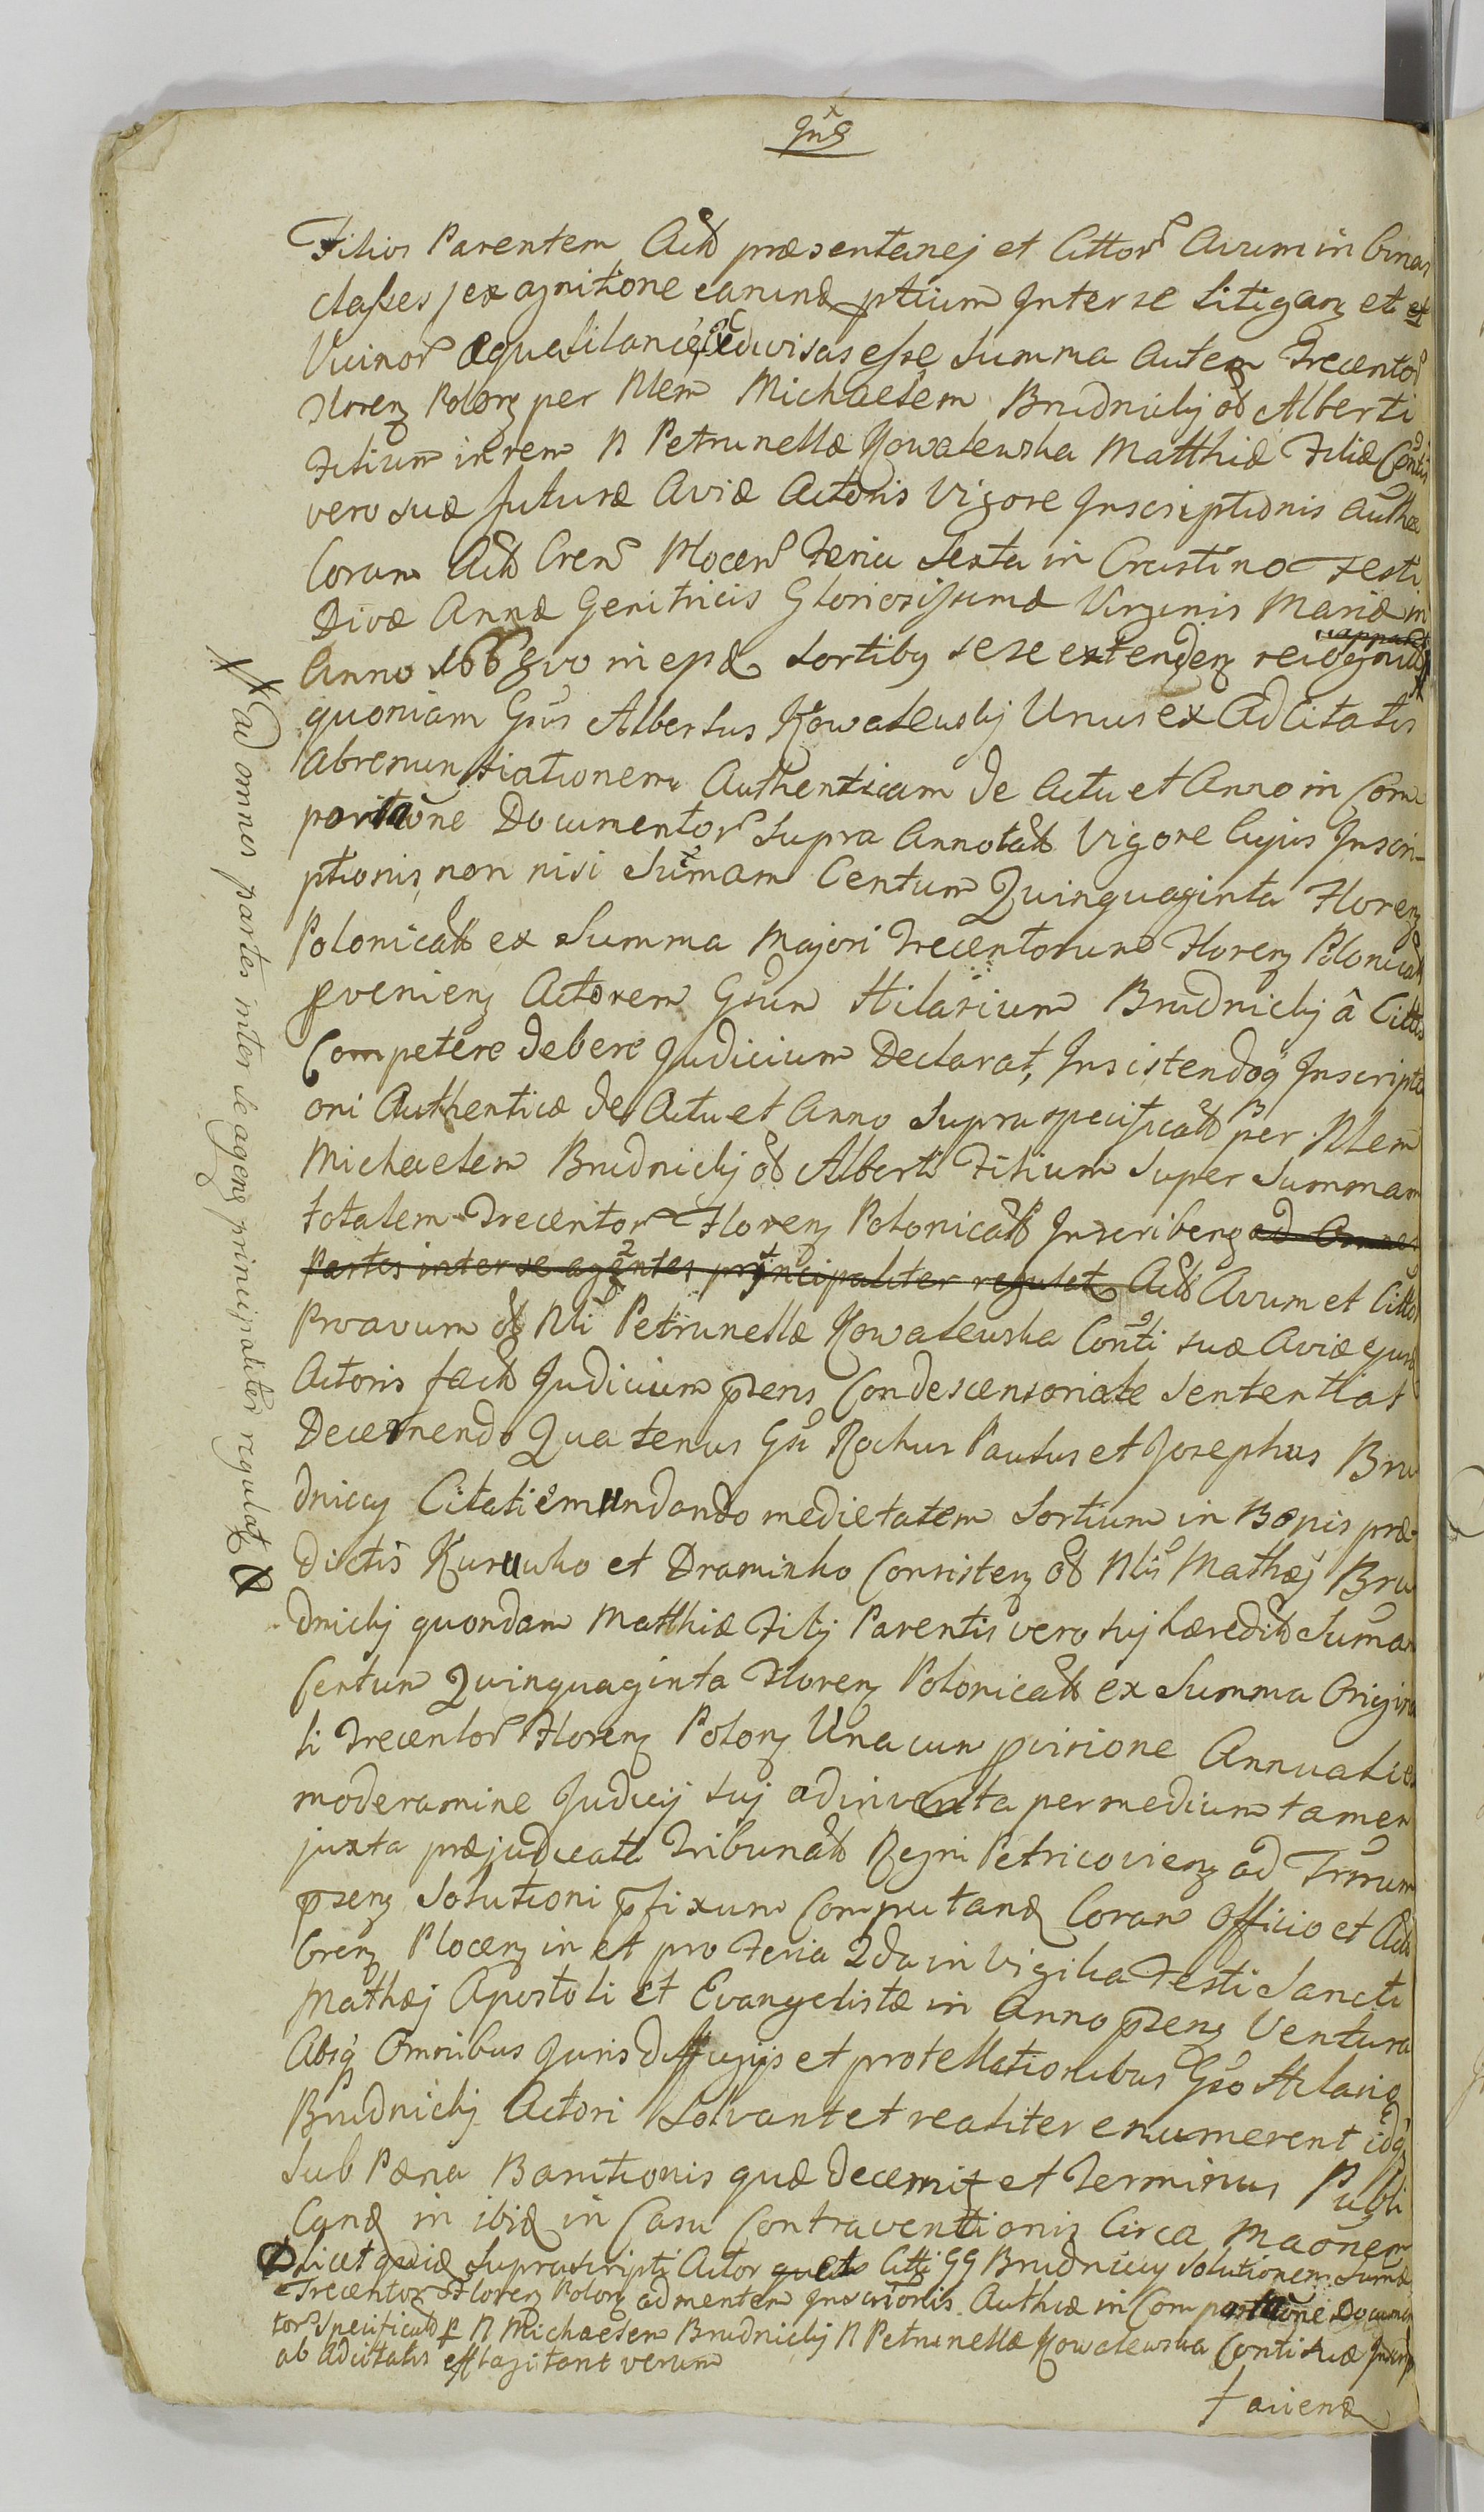 Filios Parentem Actt præsentanej et Cittor Avum in binas
classes, ex agnitione earund ptium Inter se Litigan et et
Vicinor æqualitancie divisas esse Summa autem Trecentor
Floren Polon per Nlem Michaelem Brudnickj od Alberti
Filium in rem N Petrunellæ Kowalewska Matthiæ Filiæ Conti
vero suæ futuræ Aviæ Actoris Vigore Inscriptionis Authcæ
Coram Actt Cren Plocen Feria Sexta in Crastino Festi
Divæ Annæ Genitricis Gloriosissimæ Virginis Mariæ in
Anno 166 in eisd Sortiby sese extenden recognitt
quoniam Gsus Albertus Kowalewskj Unus ex Adcitatis
abrenuntiationem Authenticam de Actu et Anno in Com
portaone Documentor Supra Annotatt Vigore Cujus Inscri-
ptionis non nisi Sumam Centum Quinquaginta Floren
Polonicatt ex Summa Majori Trecentorum Floren Polonicatt
pvenien Actorem Gsum Hilarium Brudnickj â Cittis
Competere debere Judicium Declarat, Insistendoq Inscripti
oni Authenticæ de Actu et Anno Supra specificatt per Nlem
Michaelem Brudnickj od Alberti Filium Super Summam
totalem Trecentor Floren Polonicatt Inscriben ad Omnes
Partes inter se agentes principaliter regulat Actt Avum et Cittor
Proavum od Nli Petrunellæ Kowalewska Conti suæ Aviæ ejusd
Actoris fact Judicium psens Condescensoriale Sententiat
Decernendo Quatenus Gsi Rochus Paulus et Josephus Bru
dniccy Citati emundando medietatem Sortium in Bonis præ
dictis Kurowko et Draminko Consisten od Nlis Mathæj Bru
dnickj quondam Matthiæ Filij Parentis vero suj hæredit Sumam
Centum Quinquaginta Floren Polonicatt ex Summa Origina
li Trecentor Floren Polon Una cum pvisione Annuatis
moderamine Judicij suj adinventa per medium tamen
juxta præjudicatt Tribunatt Regni Petricovien ad Trmum
psen Solutioni pfixum Computand Coram Officio et Actt
Cren Plocen in et pro Feria 2da in Vigilia Festi Sancti
Mathæj Apostoli et Evangelistæ in Anno psen Ventura
Absq Omnibus Juris diffugijs et protellationibus Gso Hilario
Brudnickj Actori Solvant et realiter enumerent idq
Sub Pæna Banitionis quæ decernit et Terminus Publi
cand in ibid in Casu Contraventionis Circa Maonem
Licet Suprascripti Actor Citti GG Brudniccy Solutionem Sumæ
Trecentor Floren Polon ad mentem Inscrionis Authcæ in Comportaone Documen
tor Specificatt p N Michaelem Brudnickj N Petrunellæ Kowalewska Conti suæ
ab Adcitatis efflagitant verum
faciend
# ad omnes partes inter se agens principaliter regulat